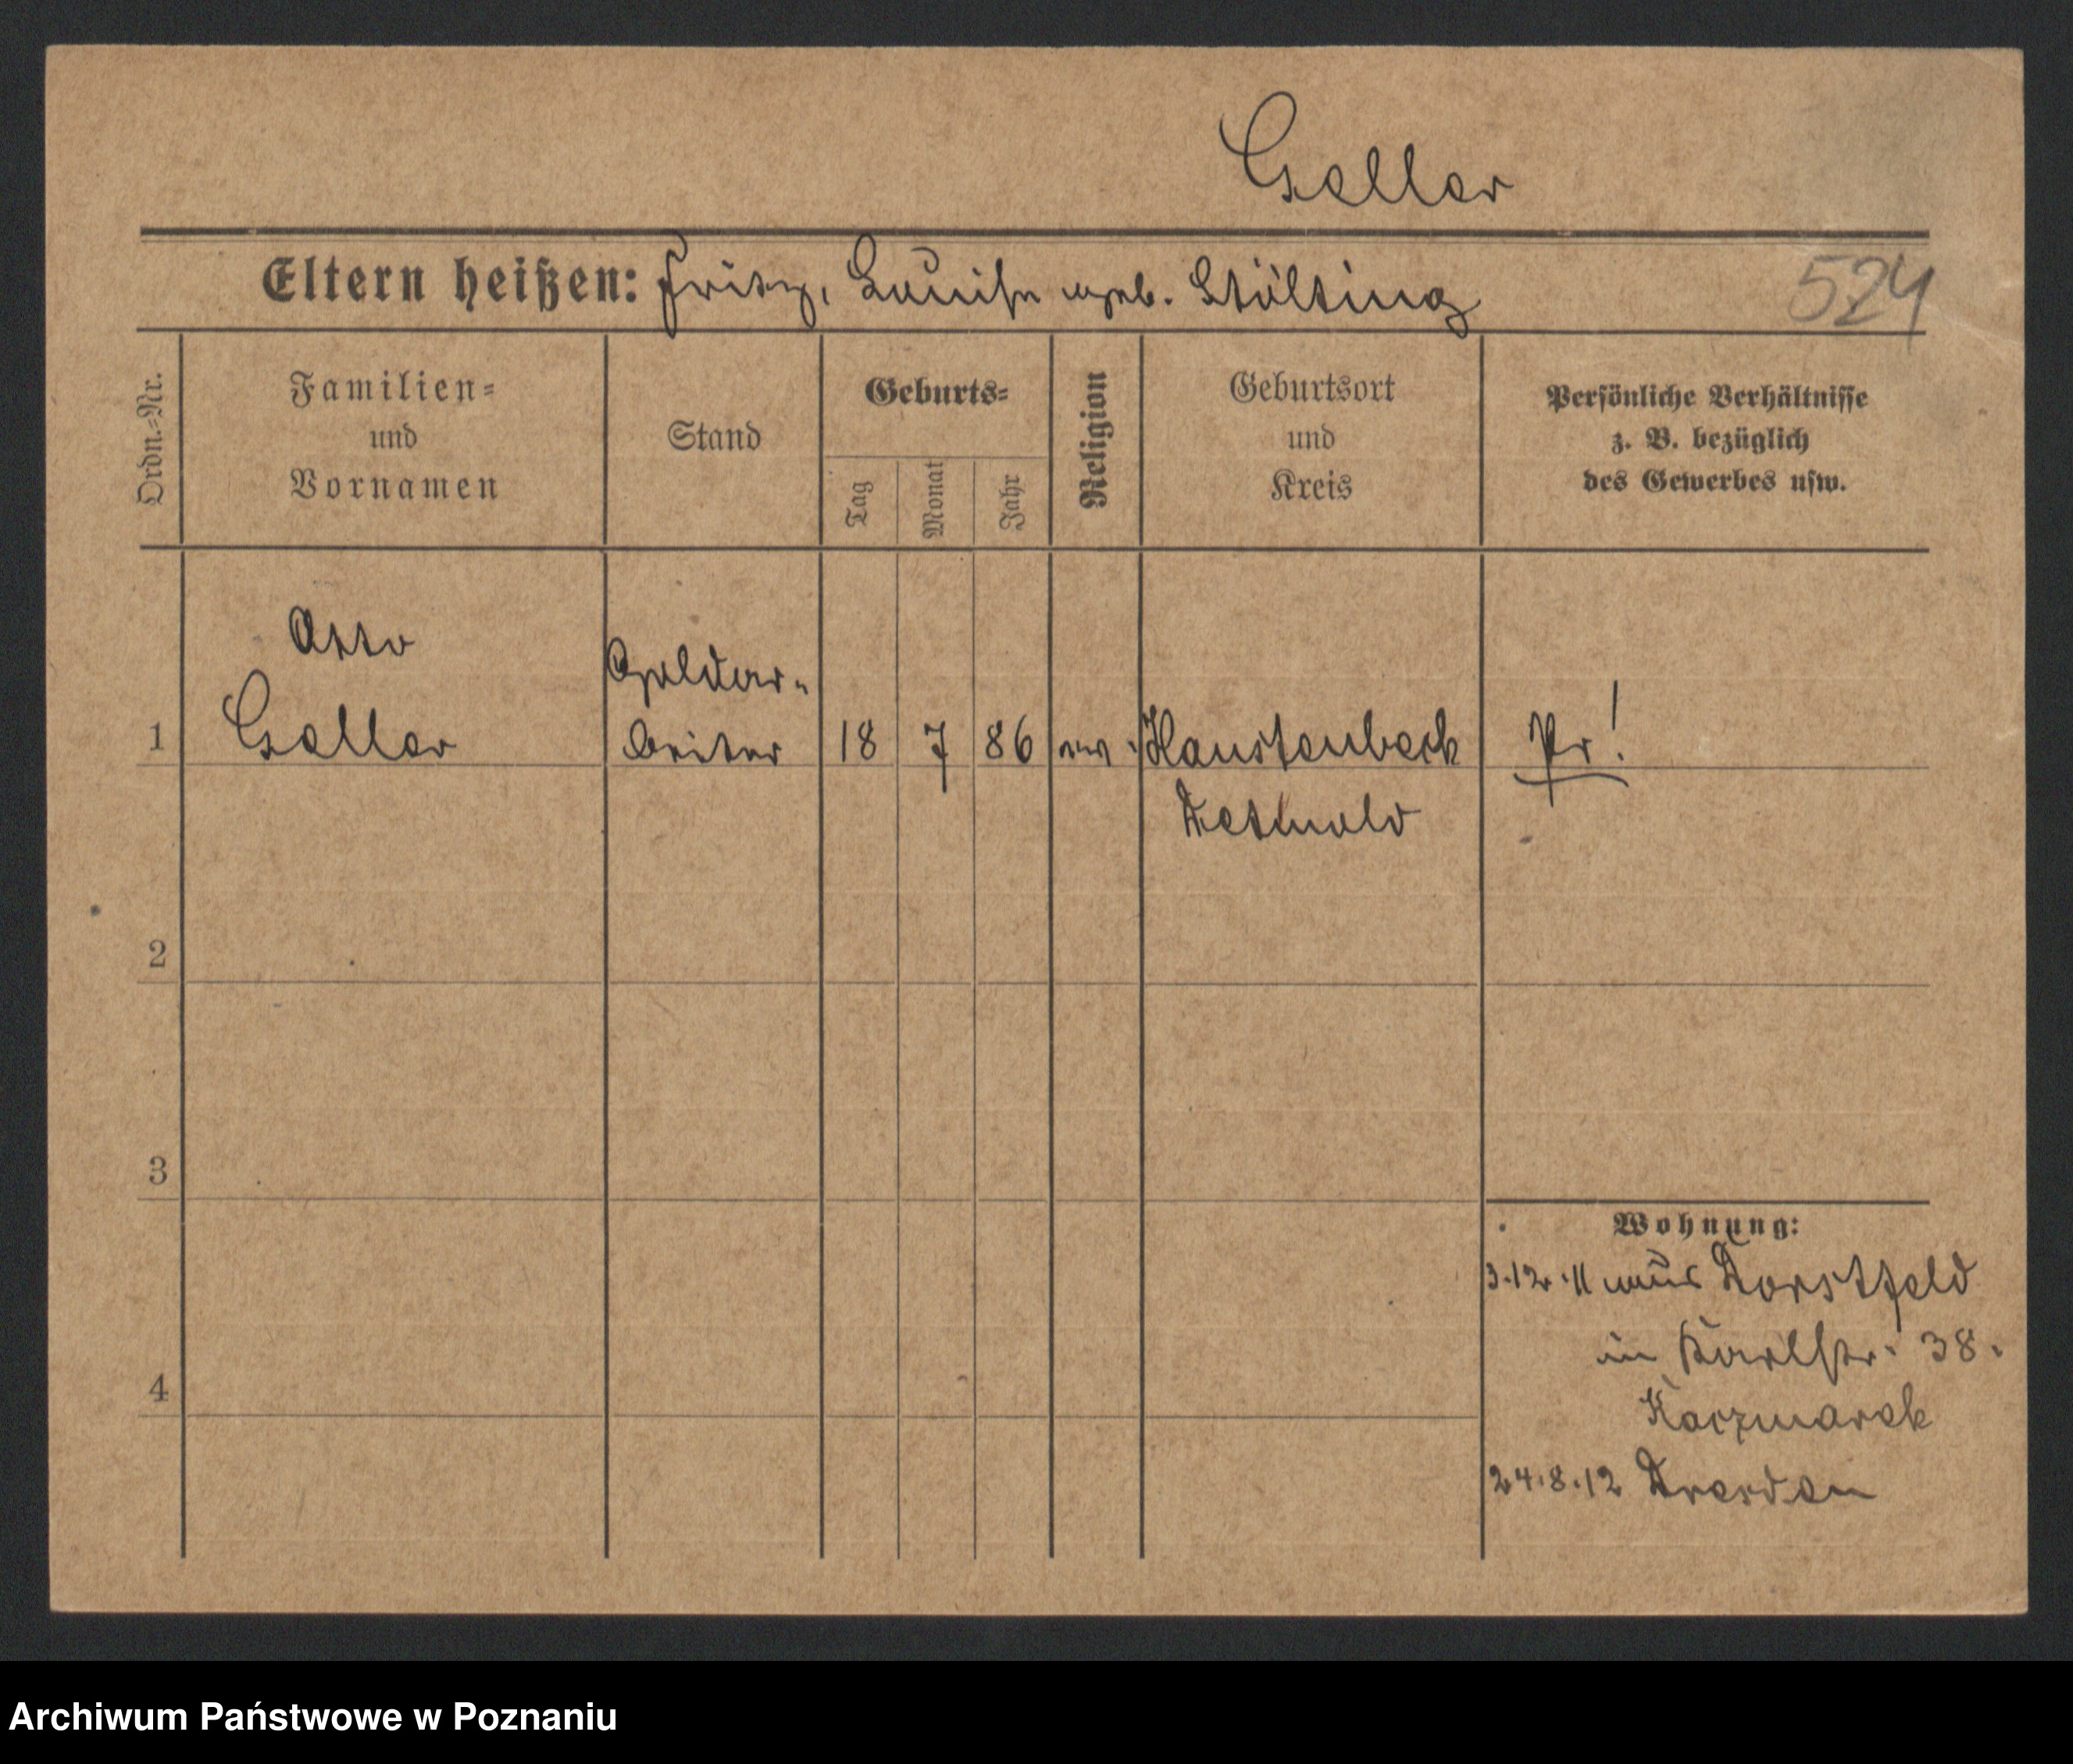 Geller
Eltern heißen: Fritz, Louise geb. Stölting
524
Ordn.=Nr.
Familien=
und
Vornamen
Stand
Geburts=
Tag
Monat
Jahr
Religion
Geburtsort
und
Kreis
Persönliche Verhältnisse
z. B. bezüglich
des Gewerbes usw.
Otto
Geller
Goldar-
beiter
1
18
7
86
ev.
Haustenbeck
Detmold
Pr!
2
3
4
Wohnung:
3.12.11 aus Dorstfeld
in Karlstr. 38.
Kaczmarek
24.8.12 Dresden
Archiwum Państwowe w Poznaniu